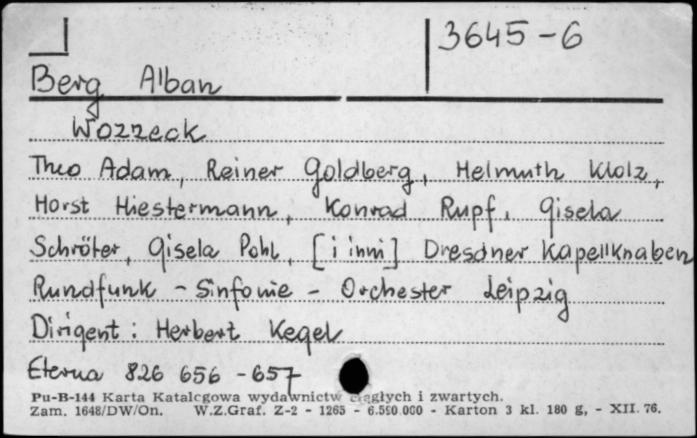 3645-6
Berg Alban
Wozzeck
Theo Adam, Reiner Goldberg, Helmuth Klotz,
Horst Hiestermann, Konrad Rupf, Gisela
Schröter, Gisela Pohl, [i inni] Dresdner Kapellknaben
Rundfunk - Sinfonie - Orchester Leipzig
Dirigent: Herbert Kegel
Eterna 826 656 - 657
Pu-B-144 Karta Katalogowa wydawnictw ciągłych i zwartych.
Zam. 1648/DW/On. W.Z.Graf. Z-2 - 1265 - 6.550.000 - Karton 3 kl. 180 g, - XII. 76.